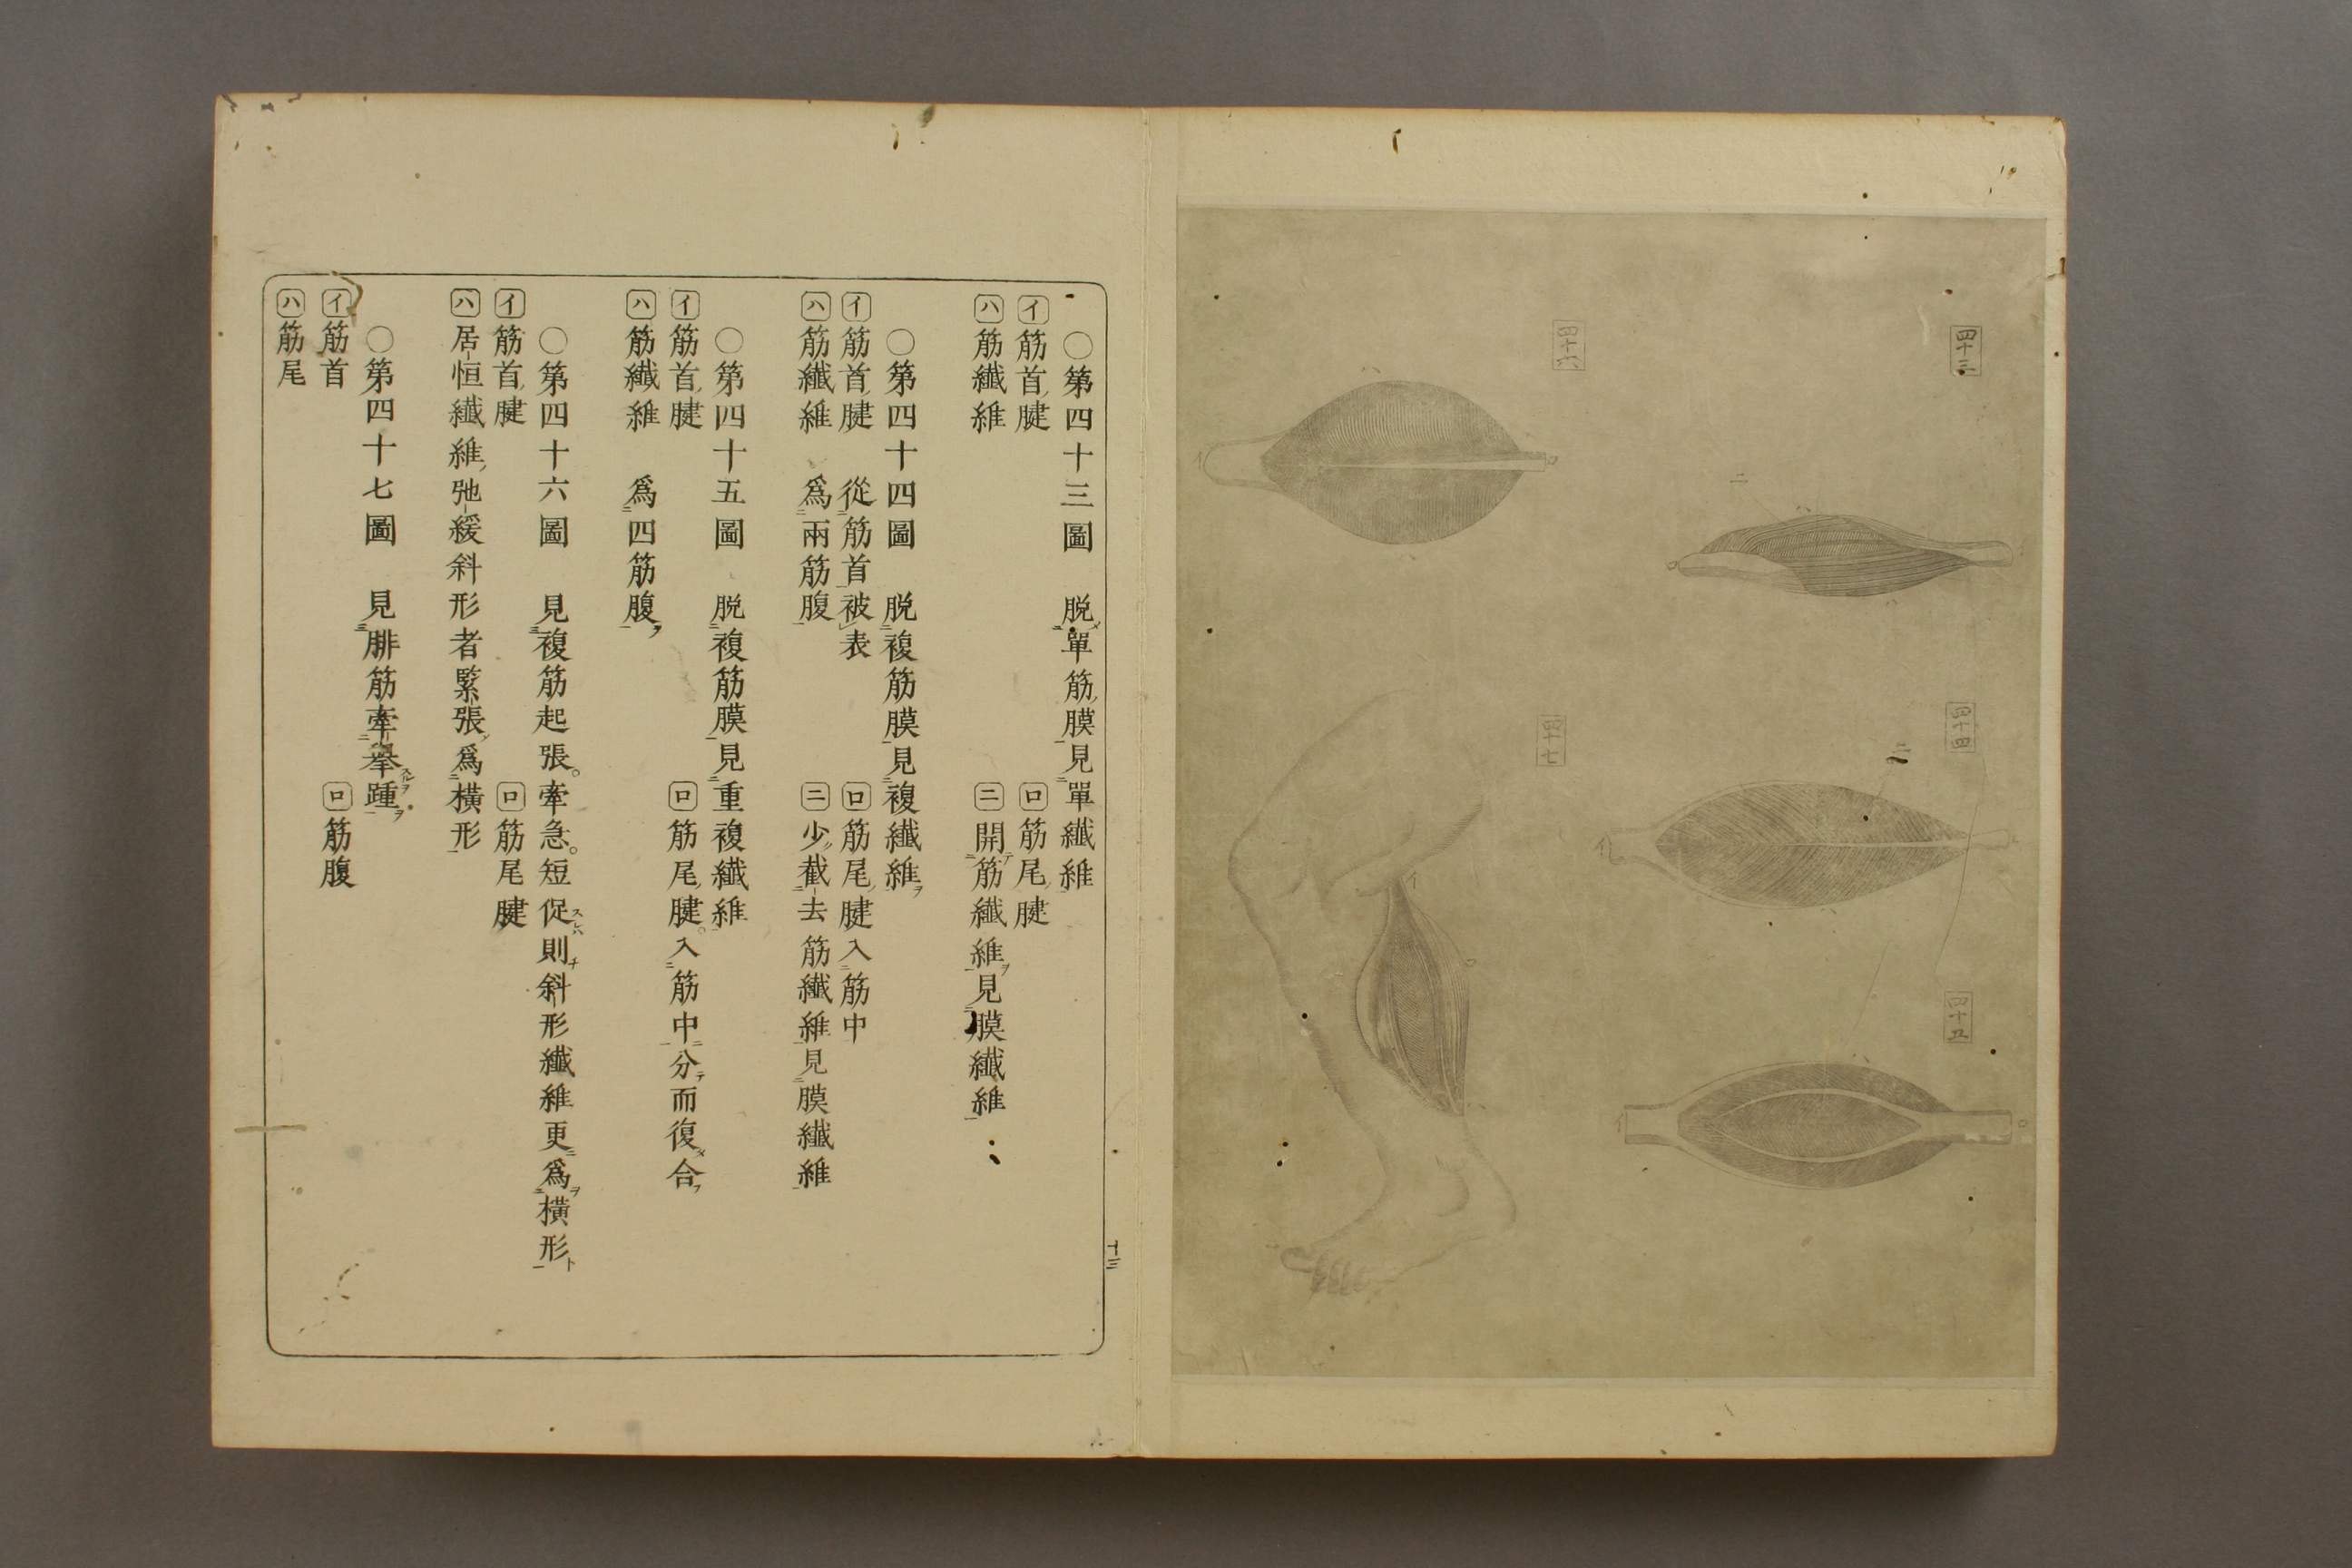 四十三
四十四
四十五
四十六
四十七
〇第四十三圖　脱單筋膜見單纖維
イ筋首腱　ロ筋尾腱
ハ筋纖維　ニ開筋纖維見膜纖維
〇第四十四圖　脱複筋膜見複纖維
イ筋首腱　從筋首被表　ロ筋尾腱入筋中
ハ筋纖維　爲兩筋腹　ニ少截去筋纖維見膜纖維
〇第四十五圖　脱複筋膜見重複纖維
イ筋首腱　ロ筋尾腱。入筋中分而復合
ハ筋纖維　爲四筋腹
〇第四十六圖　見複筋起張。牽急。短促則斜形纖維更爲橫形
イ筋首腱　ロ筋尾腱
ハ居恒纖維弛緩斜形者緊張爲橫形
〇第四十七圖　見腓筋牽擧踵
イ筋首　ロ筋腹
ハ筋尾
十三